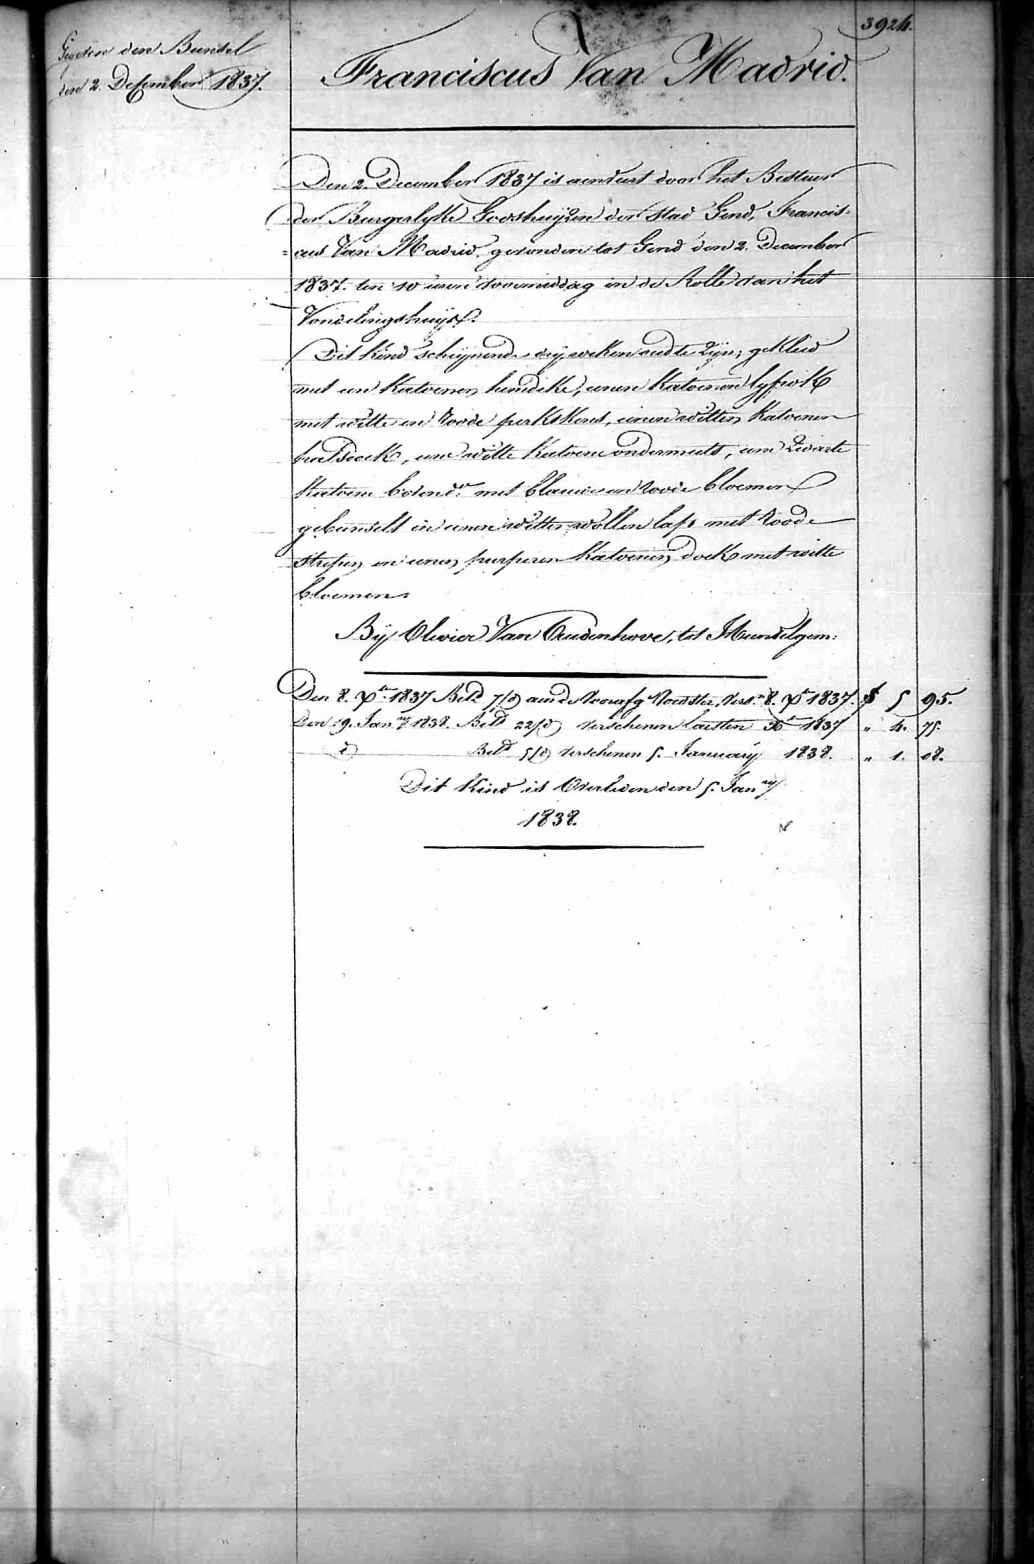 3924.
den Bundel
den 2. December 1837.
Franciscus Van Madrid.
Den 2. December 1837 is aenveirt door het Bestuer
der Burgerlyke Godshuijzen der Stad Gend, Francis=
=cus Van Madrid. gevonden tot Gend den 2. December
1837. ten 10 uren voormiddag in de Rolle van het
Vondelingshuijs.
Dit kind schijnende drij weken oud te zijn; gekleed
met een katoenen hemdeke, eenen katoenen lyfrok
met witte en roode perkskens, eenen witten katoenen
, eene witte katoene ondermuts, eene zwarte
katoene met blauwe en roode bloemen
gebunselt in eenen witten wollen lap met roode
strepen, en eenen purperen katoenen doek met witte
bloemen.
Bij Olivier Van Oudenhove, tot Munckelgem.
Den 8. Xber 1837 Betd 7/d aend Voedster, Vers. 8. Xber 1837. 5 95.
Den 9. Janry 1838. Betd 22/d verschenen laetsten Xber 1837 " 4. 75.
d Betd 5/d verschenen 5. January 1838. " 1. 08.
Dit Kind is Overleden den 5. Janry
1838.